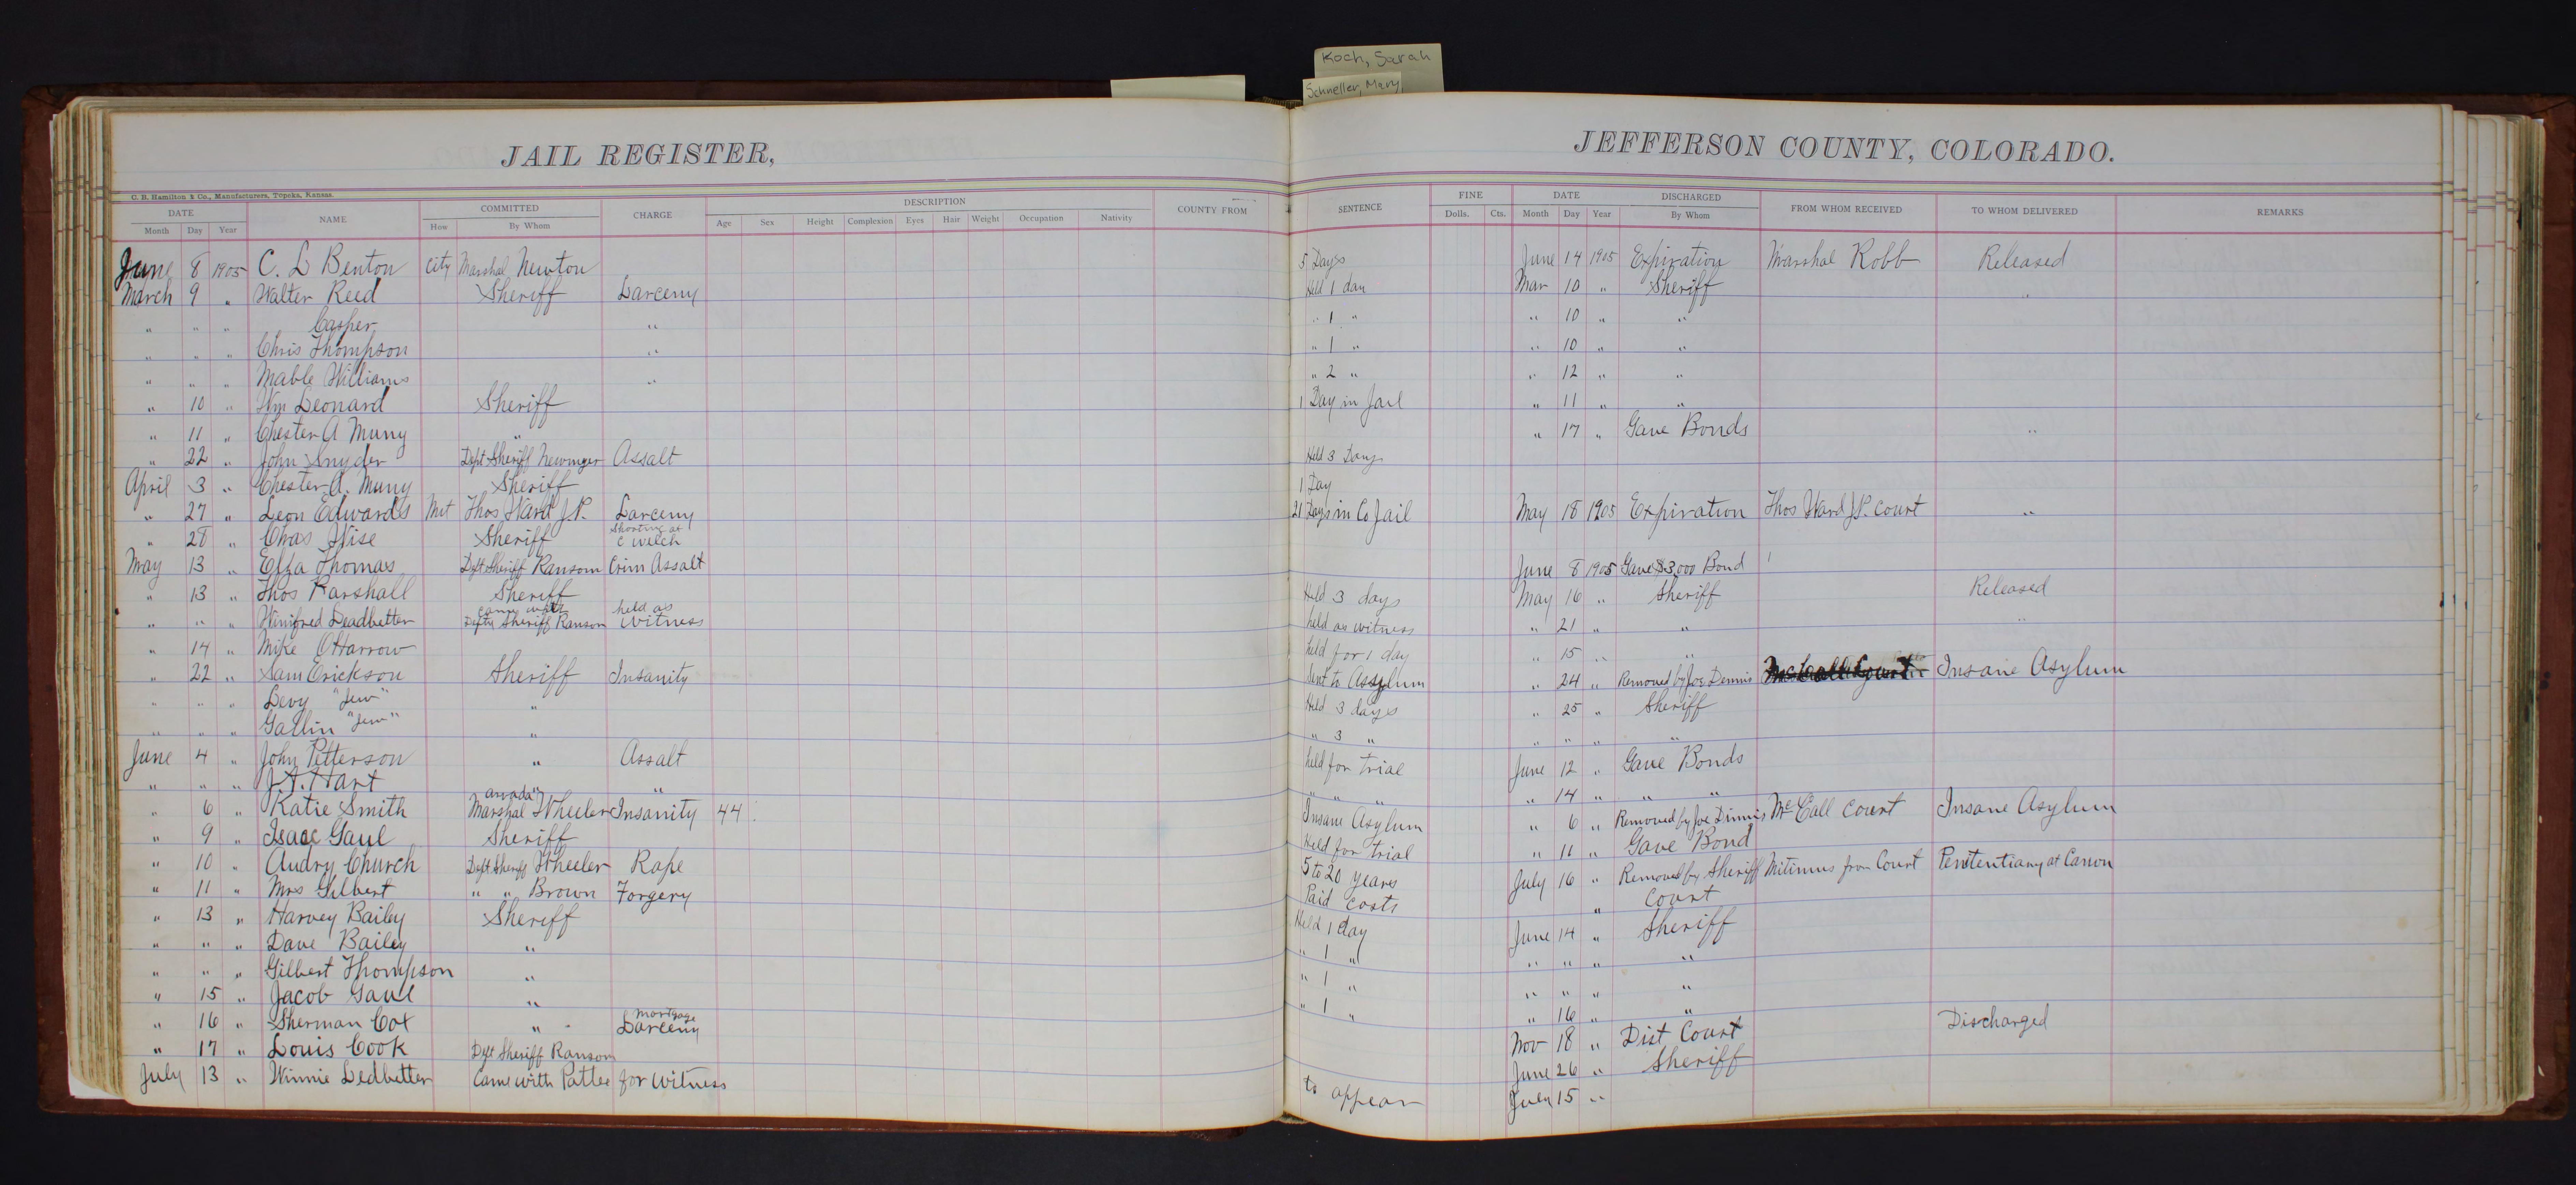 Koch, Sarah
Schneller, Mary
JAIL REGISTER,
JEFFERSON COUNTY, COLORADO.
C. B. Hamilton & Co., Manufacturers, Topeka, Kansas.
DATE NAME COMMITTED CHARGE DESCRIPTION COUNTY FROM SENTENCE FINE DATE DISCHARGED FROM WHOM RECEIVED TO WHOM DELIVERED REMARKS
Month Day Year How By Whom Age Sex Height Complexion Eyes Hair Weight Occupation Nativity Dolls. Cts. Month Day Year By Whom
June 8 1905 C. L Benton City Marshal Newton 5 Days June 14 1905 Expiration Marshal Robb Released
March 9 " Walter Reed Sheriff Larceny Held 1 day Mar 10 " Sheriff "
" " " Casper " " 1 " " 10 " "
" " " Chris Thompson " " 1 " " 10 " "
" " " Mable Williams " " 2 " " 12 " "
" 10 " Wm Leonard Sheriff 1 Day in Jail " 11 " "
" 11 " Chester A Muny " " 17 " Gave Bonds "
" 22 " John Snyder Dept Sheriff Assalt Held 3 Days
April 3 " Chester A. Muny Sheriff 1 Day
" 27 " Leon Edwards Mit Thos Ward J.P. Larceny 21 Days in Co Jail May 18 1905 Expiration Thos Ward J.P. Court "
" 28 " Chas Wise Sheriff Shooting at C Welch
May 13 " Elza Thomas Dept Sheriff Ransom Crim Assalt June 8 1905 Gave $3,000 Bond
" 13 " Thos Karshall Sheriff Held 3 days May 16 " Sheriff Released
" " " Winifred Leadbetter came with Depty Sheriff Ranson held as witness held as witness " 21 " " "
" 14 " Mike OHarrow held for 1 day " 15 " "
" 22 " Sam Erickson Sheriff Insanity Sent to Assylum " 24 " Removed by Joe Dennis Insane Asylum
" " " Levy "Jew" " Held 3 days " 25 " Sheriff
" " " Gallin "Jew" " " 3 " " " " "
June 4 " John Petterson " Assalt held for trial June 12 " Gave Bonds
" " " J. A. Hart " " " " " " 14 " " "
" 6 " Katie Smith arvada Marshal Wheeler Insanity 44 Insane Asylum " 6 " Removed by Joe Dinnis McCall Court Insane Asylum
" 9 " Isaac Gaul Sheriff Held for trial " 11 " Gave Bond
" 10 " Audry Church Dept Sheriff Wheeler Rape 5 to 20 years July 16 " Removed by Sheriff Mitimus from Court Penitentiary at Canon
" 11 " Mrs Gilbert " " Brown Forgery Paid costs " Court
" 13 " Harvey Bailey Sheriff Held 1 day June 14 " Sheriff
" " " Dave Bailey " " 1 " " " " "
" " " Gilbert Thompson " " 1 " " " " "
" 15 " Jacob Gaul " " 1 " " 16 " "
" 16 " Sherman Cox " mortgage Larceny Nov 18 " Dist Court Discharged
" 17 " Louis Cook Dept Sheriff Ransom June 26 " Sheriff
July 13 " Winnie Ledbetter Came with Pattee for Witness to appear July 15 "